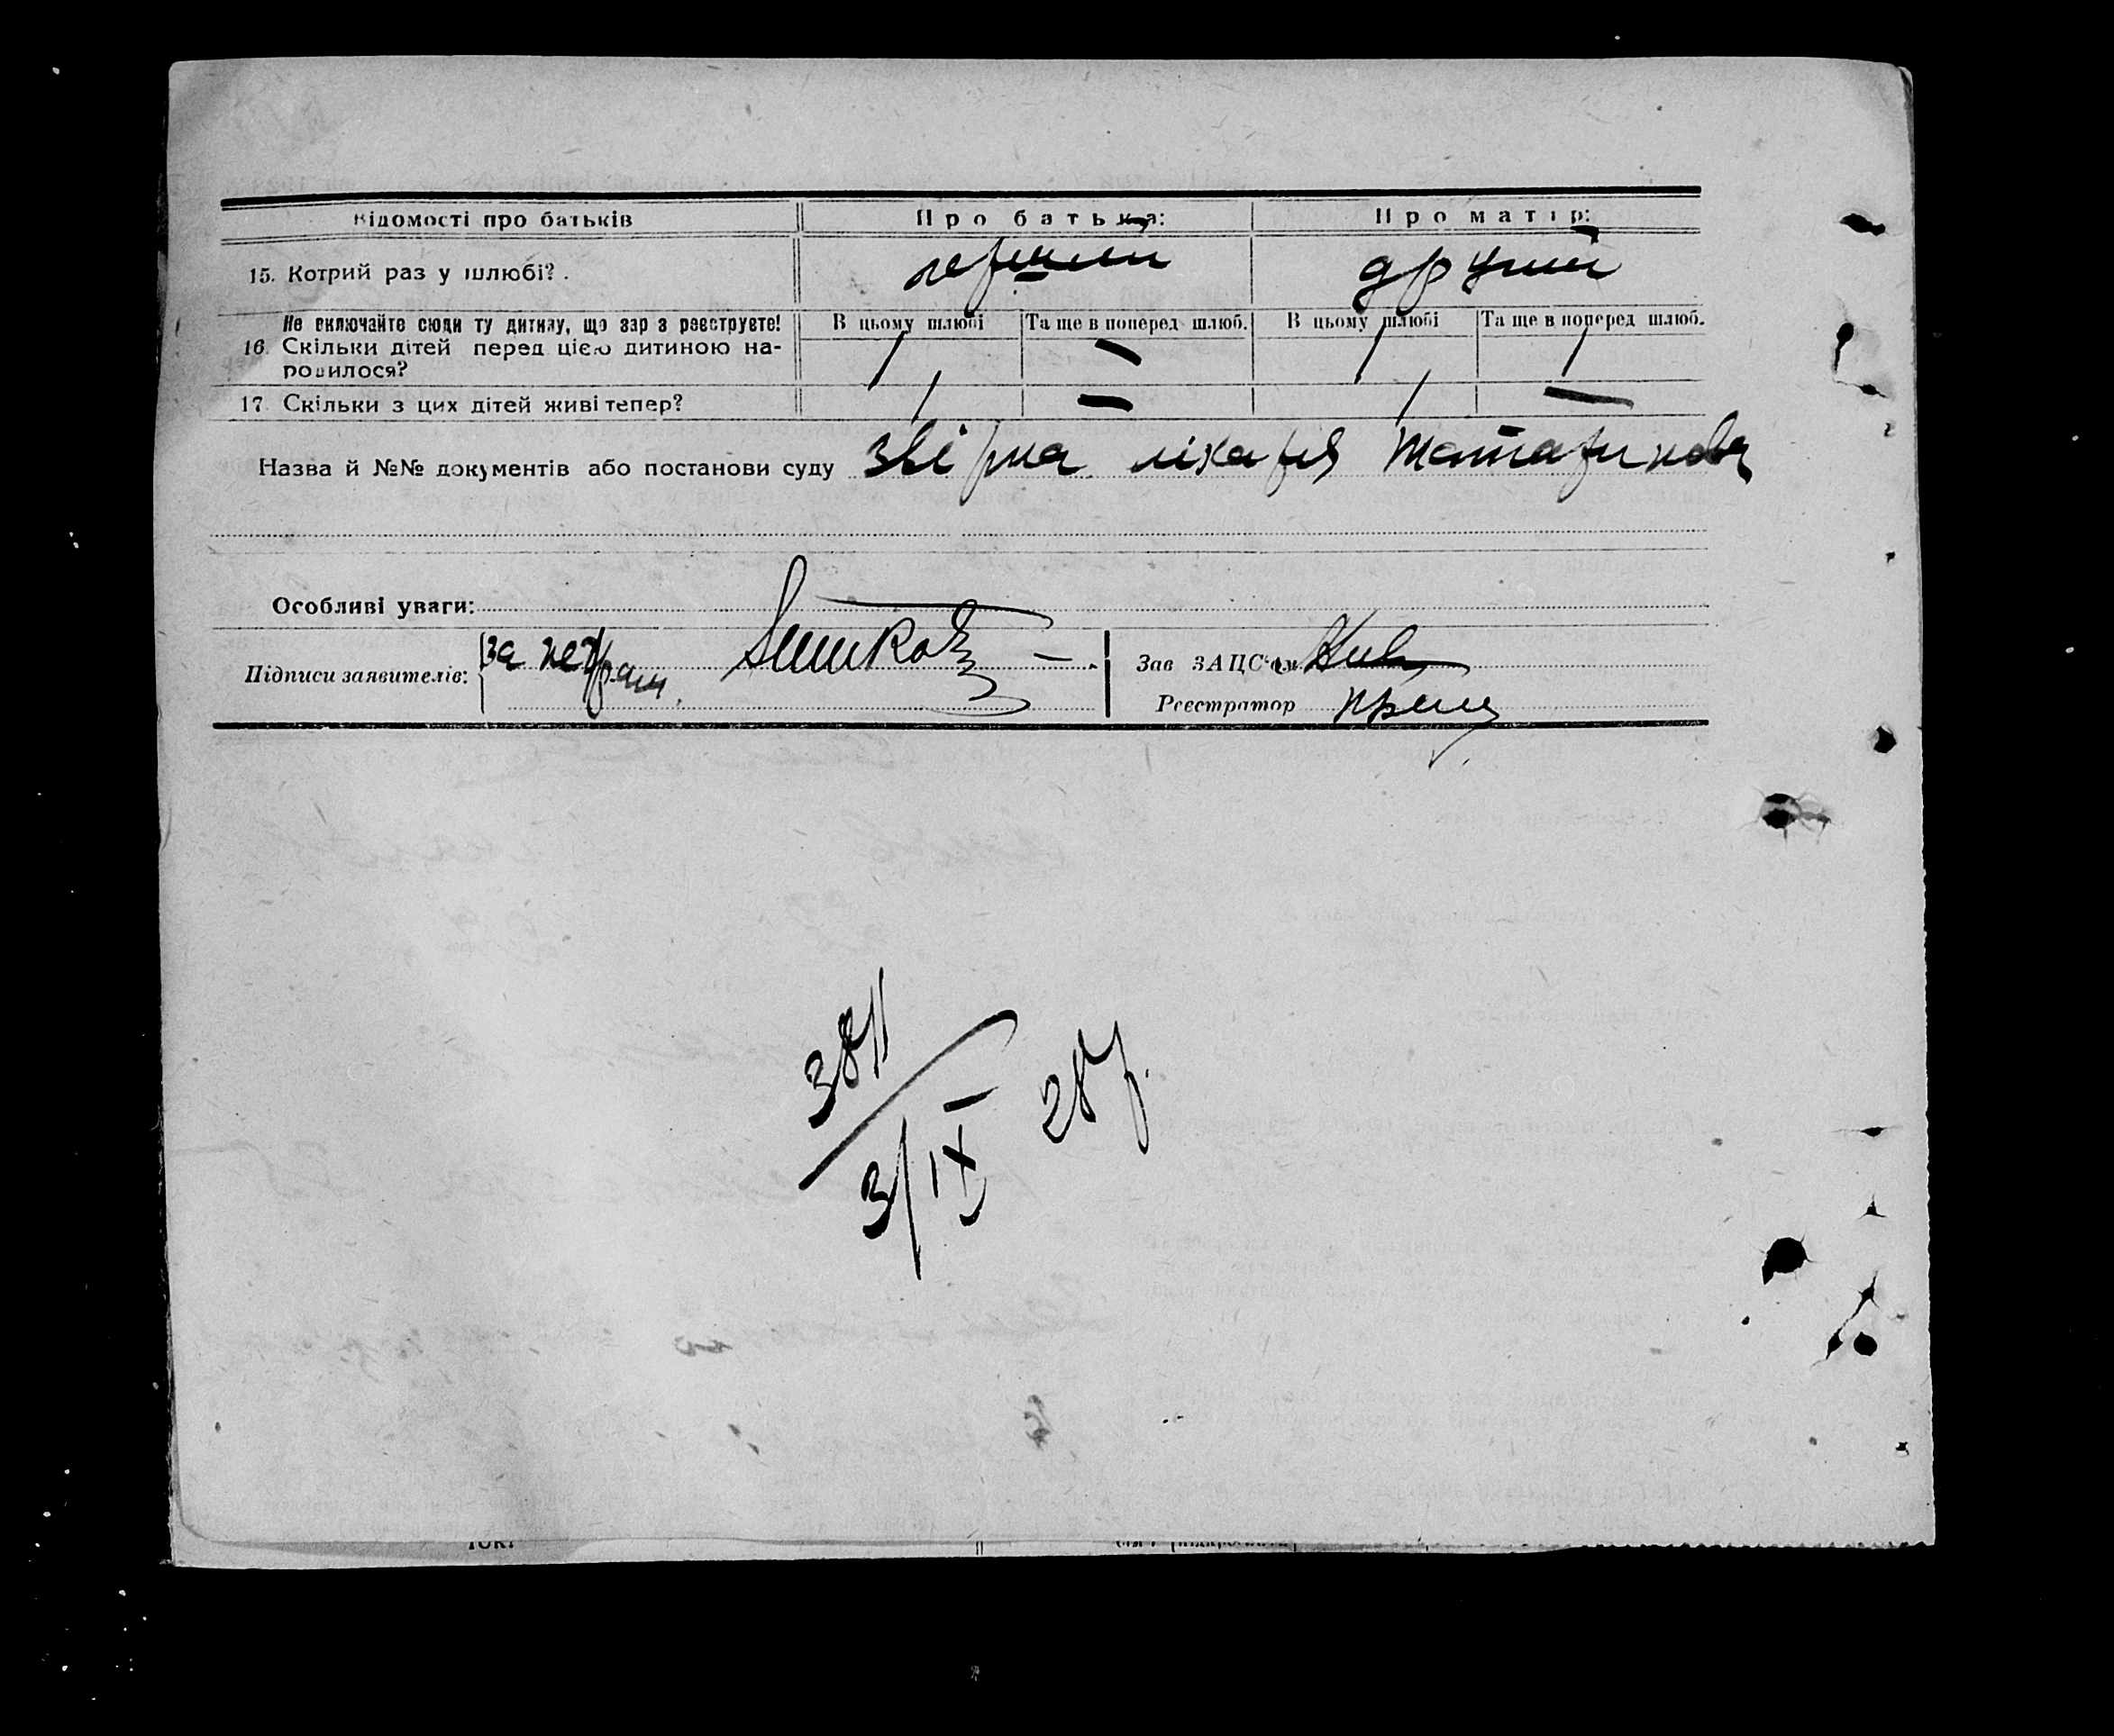 Відомості про батьків Про батька: Про матір:
15. Котрий раз у шлюбі? перший другий
Не включайте сюди ту дитину, що зар з реєструєте! В цьому шлюбі Та ще в поперед шлюб. В цьому шлюбі Та ще в поперед шлюб.
16. Скільки дітей перед цією дитиною на-
родилося? 1 — 1 1
17. Скільки з цих дітей живі тепер? 1 — 1 —
Назва й №№ документів або постанови суду звірка лікаря Татаринова
Особливі уваги:
Підписи заявителів: за неграм. Зав ЗАЦС'ом
Реєстратор
3811
3/IX 28 р.